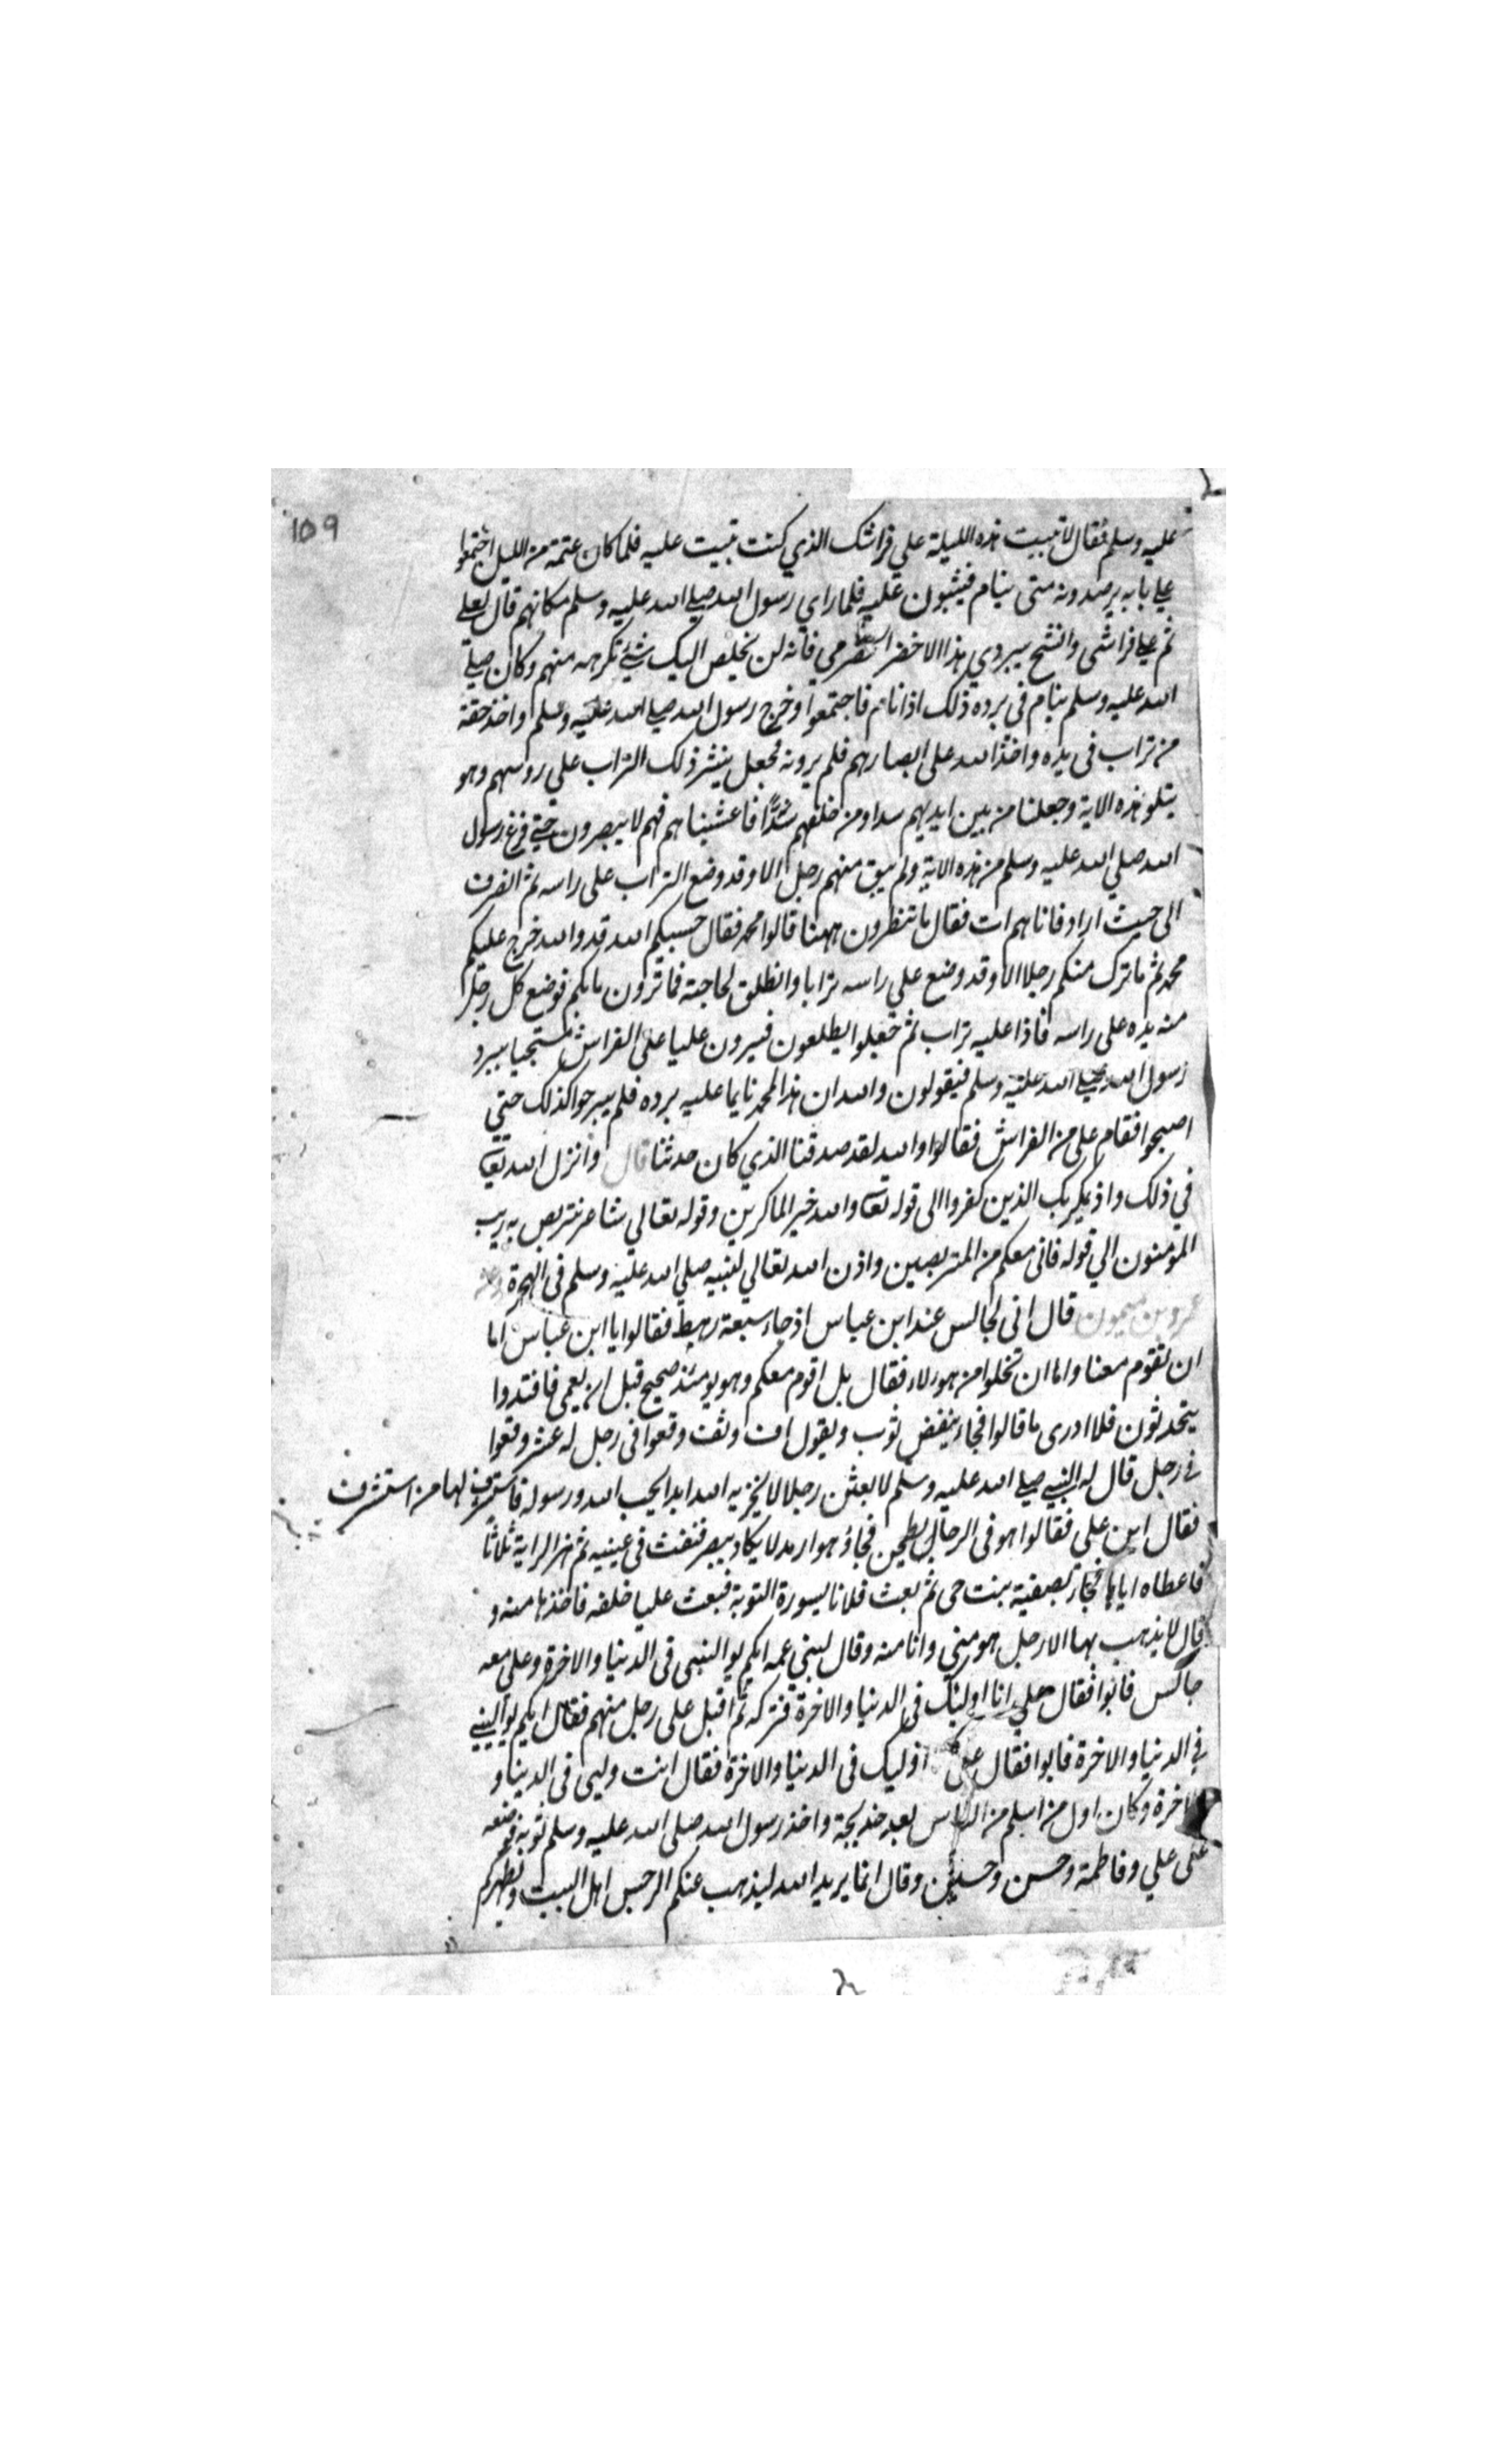 159
عليه وسلم فقال لا تبيت هذه الليلة علي فراشك الذي كنت تبيت عليه فلما كان عتمة من الليل اجتمعوا
علي بابه يرصدونه متى ينام فيثبون عليه فلما راي رسول الله صلي الله عليه وسلم مكانهم قال لعلي
نم علي فراشى واتشح ببردي هذا الاخضر الحضرمي فانه لن يخلص اليك شئ تكرهه منهم وكان صلي
الله عليه وسلم ينام فى برده ذلك اذا نام فاجتمعوا وخرج رسول الله صلي الله عليه وسلم واخذ حفنة
من تراب فى يده واخذ الله على ابصارهم فلم يرونه فجعل ينشر ذلك التراب علي روسهم وهو
يتلو هذه الاية وجعلنا من بين ايديهم سدا ومن خلفهم سدًّا فاغشيناهم فهم لا يبصرون حتي فرغ رسول
الله صلي الله عليه وسلم من هذه الاية ولم يبق منهم رجل الا وقد وضع التراب على راسه ثم انصرف
الى حيث اراد فاتاهم ات فقال ما تنظرون ههنا قالوا محمد فقال حسبكم الله قد والله خرج عليكم
محمد ثم ما ترك منكم رجلا الا وقد وضع علي راسه ترابا وانطلق لحاجته فما ترون ما بكم فوضع كل رجل
منه يده على راسه فاذا عليه تراب ثم جعلوا يطلعون فيرون عليا على الفراش مستجيا ببرد
رسول الله صلي الله عليه وسلم فيقولون والله ان هذا لمحمد نايما عليه برده فلم يبرحوا كذلك حتى
اصبحوا فقام على من الفراش فقالوا والله لقد صدقنا الذي كان حدثنا قال وانزل الله تعا
في ذلك واذ يمكر بك الذين كفروا الى قوله تعا والله خير الماكرين وقوله تعالي شاعر نتربص به ريب
المؤمنون الي قوله فانى معكم من المتربصين واذن الله تعالي لنبيه صلي الله عليه وسلم فى الهجرة
عمرو بن ميمون قال انى لجالس عند ابن عباس اذ جاء سبعة رهط فقالوا يا ابن عباس اما
ان تقوم معنا واما ان تخلوا من هوءلاء فقال بل اقوم معكم وهو يومئذ صحيح قبل ان يعمى فافتدوا
يتحدثون فلا ادرى ما قالوا فجاء ينفض ثوب ويقول اف وتف وقعوا فى رجل له عشر وقعوا
في رجل قال له النبي صلي الله عليه وسلم لابعثن رجلا لا يخزيه الله ابدا يحب الله ورسوله فاستشرف لها من استشرف
فقال اين على فقالوا هو فى الرحا يطحن فجاء وهو ارمد لا يكاد يبصر فنفث فى عينيه ثم هز الراية ثلاثا
فاعطاه اياها فجاء بصفية بنت حى ثم بعث فلانا بسورة التوبة فبعث عليا خلفه فاخذها منه و
قال لا يذهب بها الا رجل هو مني وانا منه وقال لبني عمه ايكم يوالينى فى الدنيا والاخرة وعلى معه
جالس فابوا فقال علي انا اوليك فى الدنيا والاخرة فتركه ثم اقبل على رجل منهم فقال ايكم يوالينى
في الدنيا والاخرة فابوا فقال على اوليك فى الدنيا والاخرة فقال انت وليى فى الدنيا و
الاخرة وكان اول من اسلم من الناس بعد خديجة واخذ رسول الله صلى الله عليه وسلم ثوبه فوضعه
على علي وفاطمة وحسن وحسين وقال انما يريد الله ليذهب عنكم الرجس اهل البيت ويطهركم